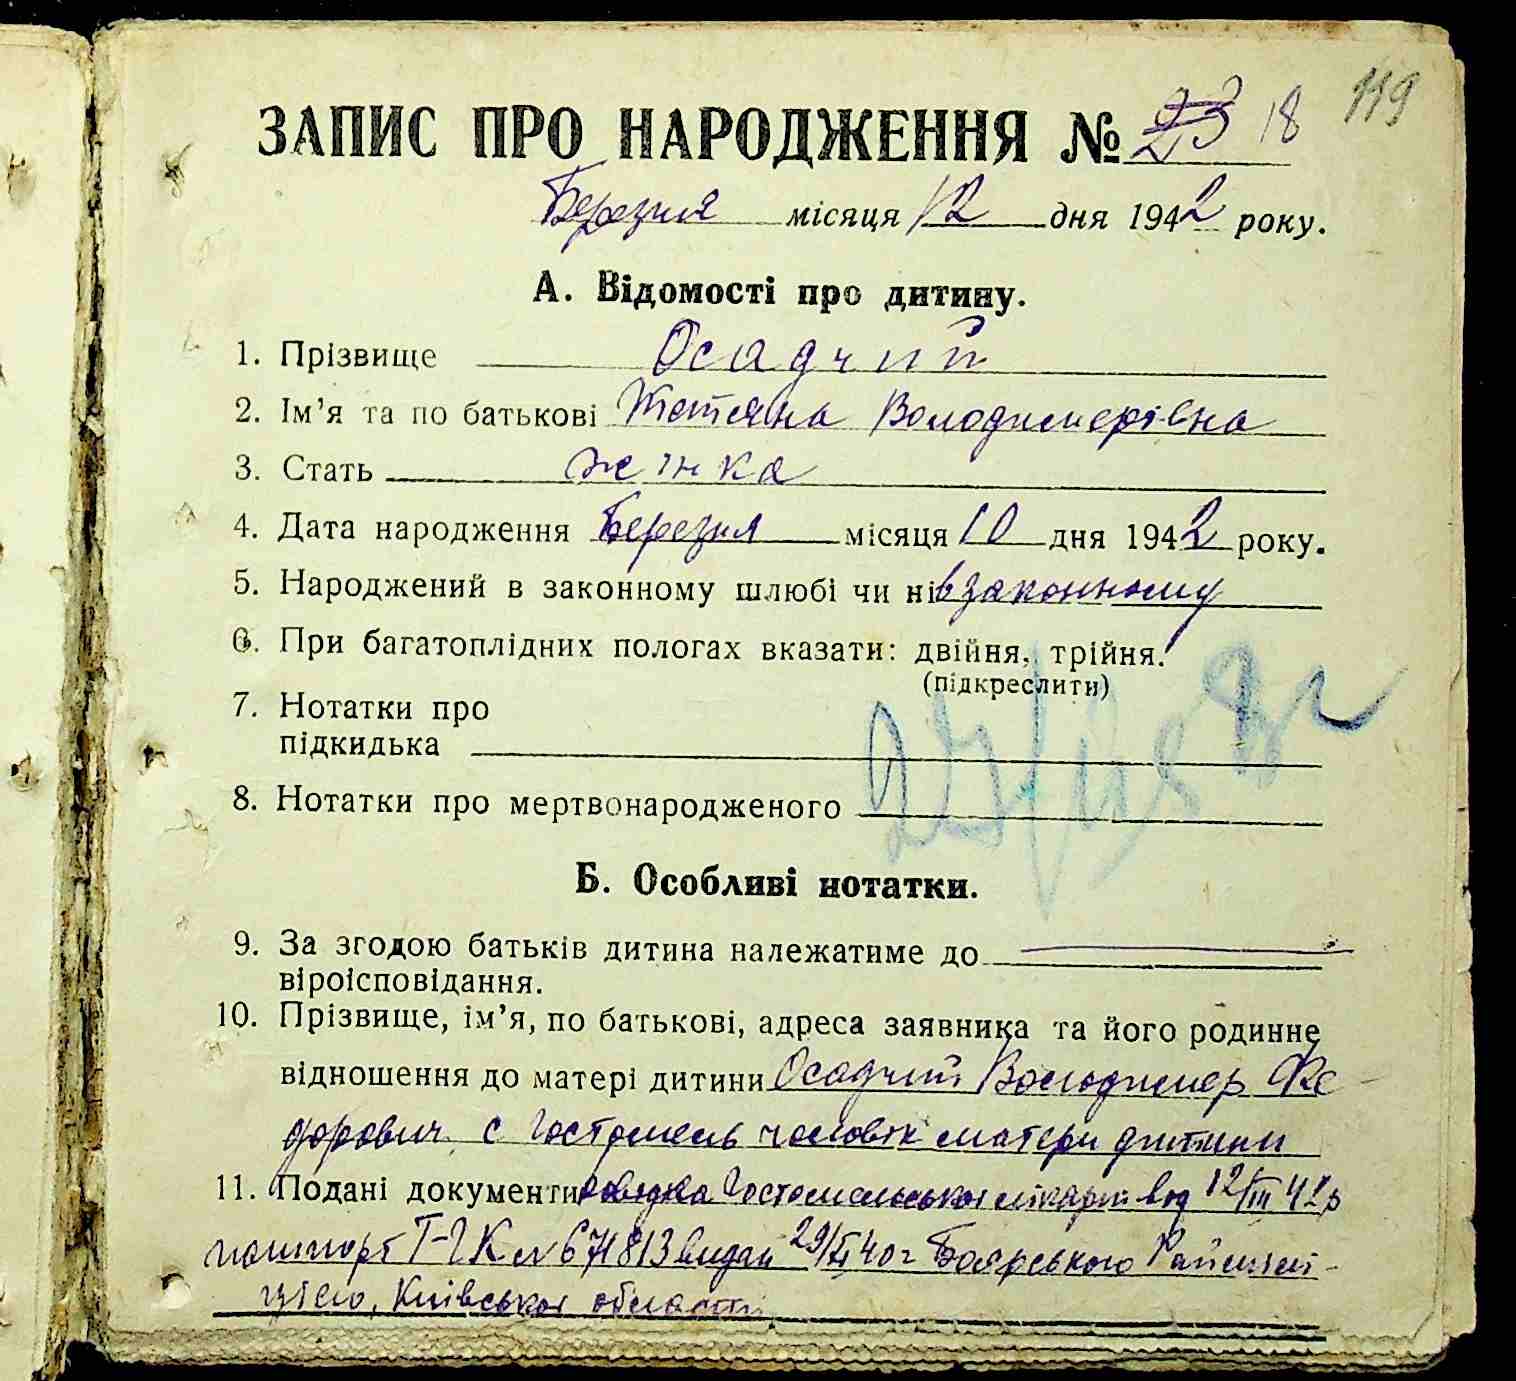 119
ЗАПИС ПРО НАРОДЖЕННЯ № 23 18
Березня місяця 12 дня 1942 року.
А. Відомості про дитину.
1. Прізвище Осадчий
2. Ім’я та по батькові Тетяна Володимерівна
3. Стать жінка
4. Дата народження Березня місяця 10 дня 1942 року.
5. Народжений в законному шлюбі чи ні в законному
6. При багатоплідних пологах вказати: двійня, трійня.
(підкреслити)
7. Нотатки про
підкидька
8. Нотатки про мертвонародженого
Б. Особливі нотатки.
9. За згодою батьків дитина належатиме до
віроісповідання.
10. Прізвище, ім’я, по батькові, адреса заявника та його родинне
відношення до матері дитини Осадчий Володимер Фе-
дорович с Гостомель чоловік матери дитини
11. Подані документи довідка Гостомельської лікарні від 12/III 42 р
пашпорт Т-ГК № 671813 видан 29/ 40 г Боярського Райміліт-
цією, Київської області